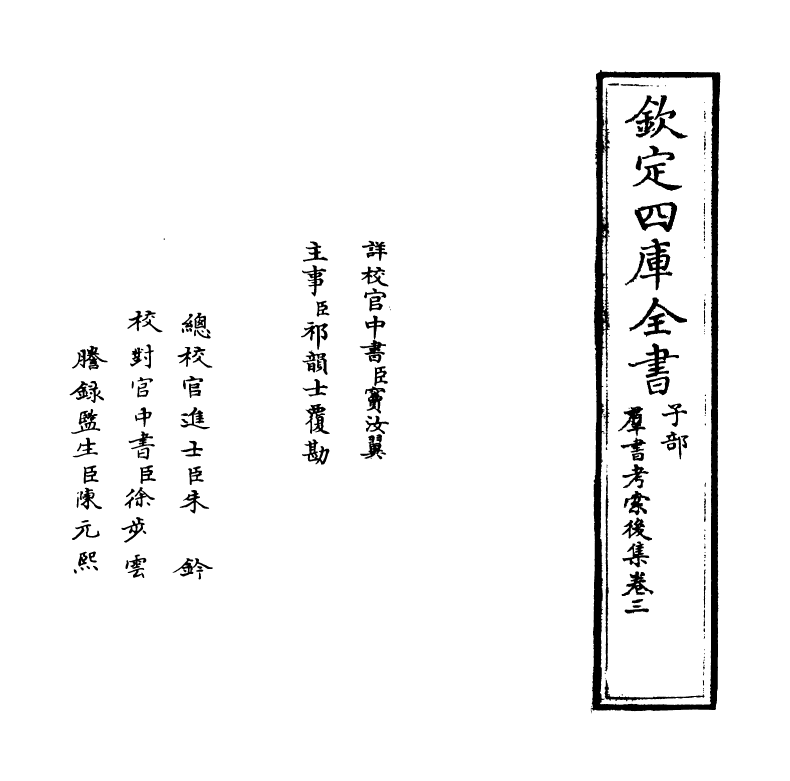 欽定四庫全書
子部
羣書考索後集卷三
詳校官中書臣竇汝翼
主事臣祁韻士覆勘
總校官進士臣朱鈐
校對官中書臣徐步雲
謄録監生臣陳元熙